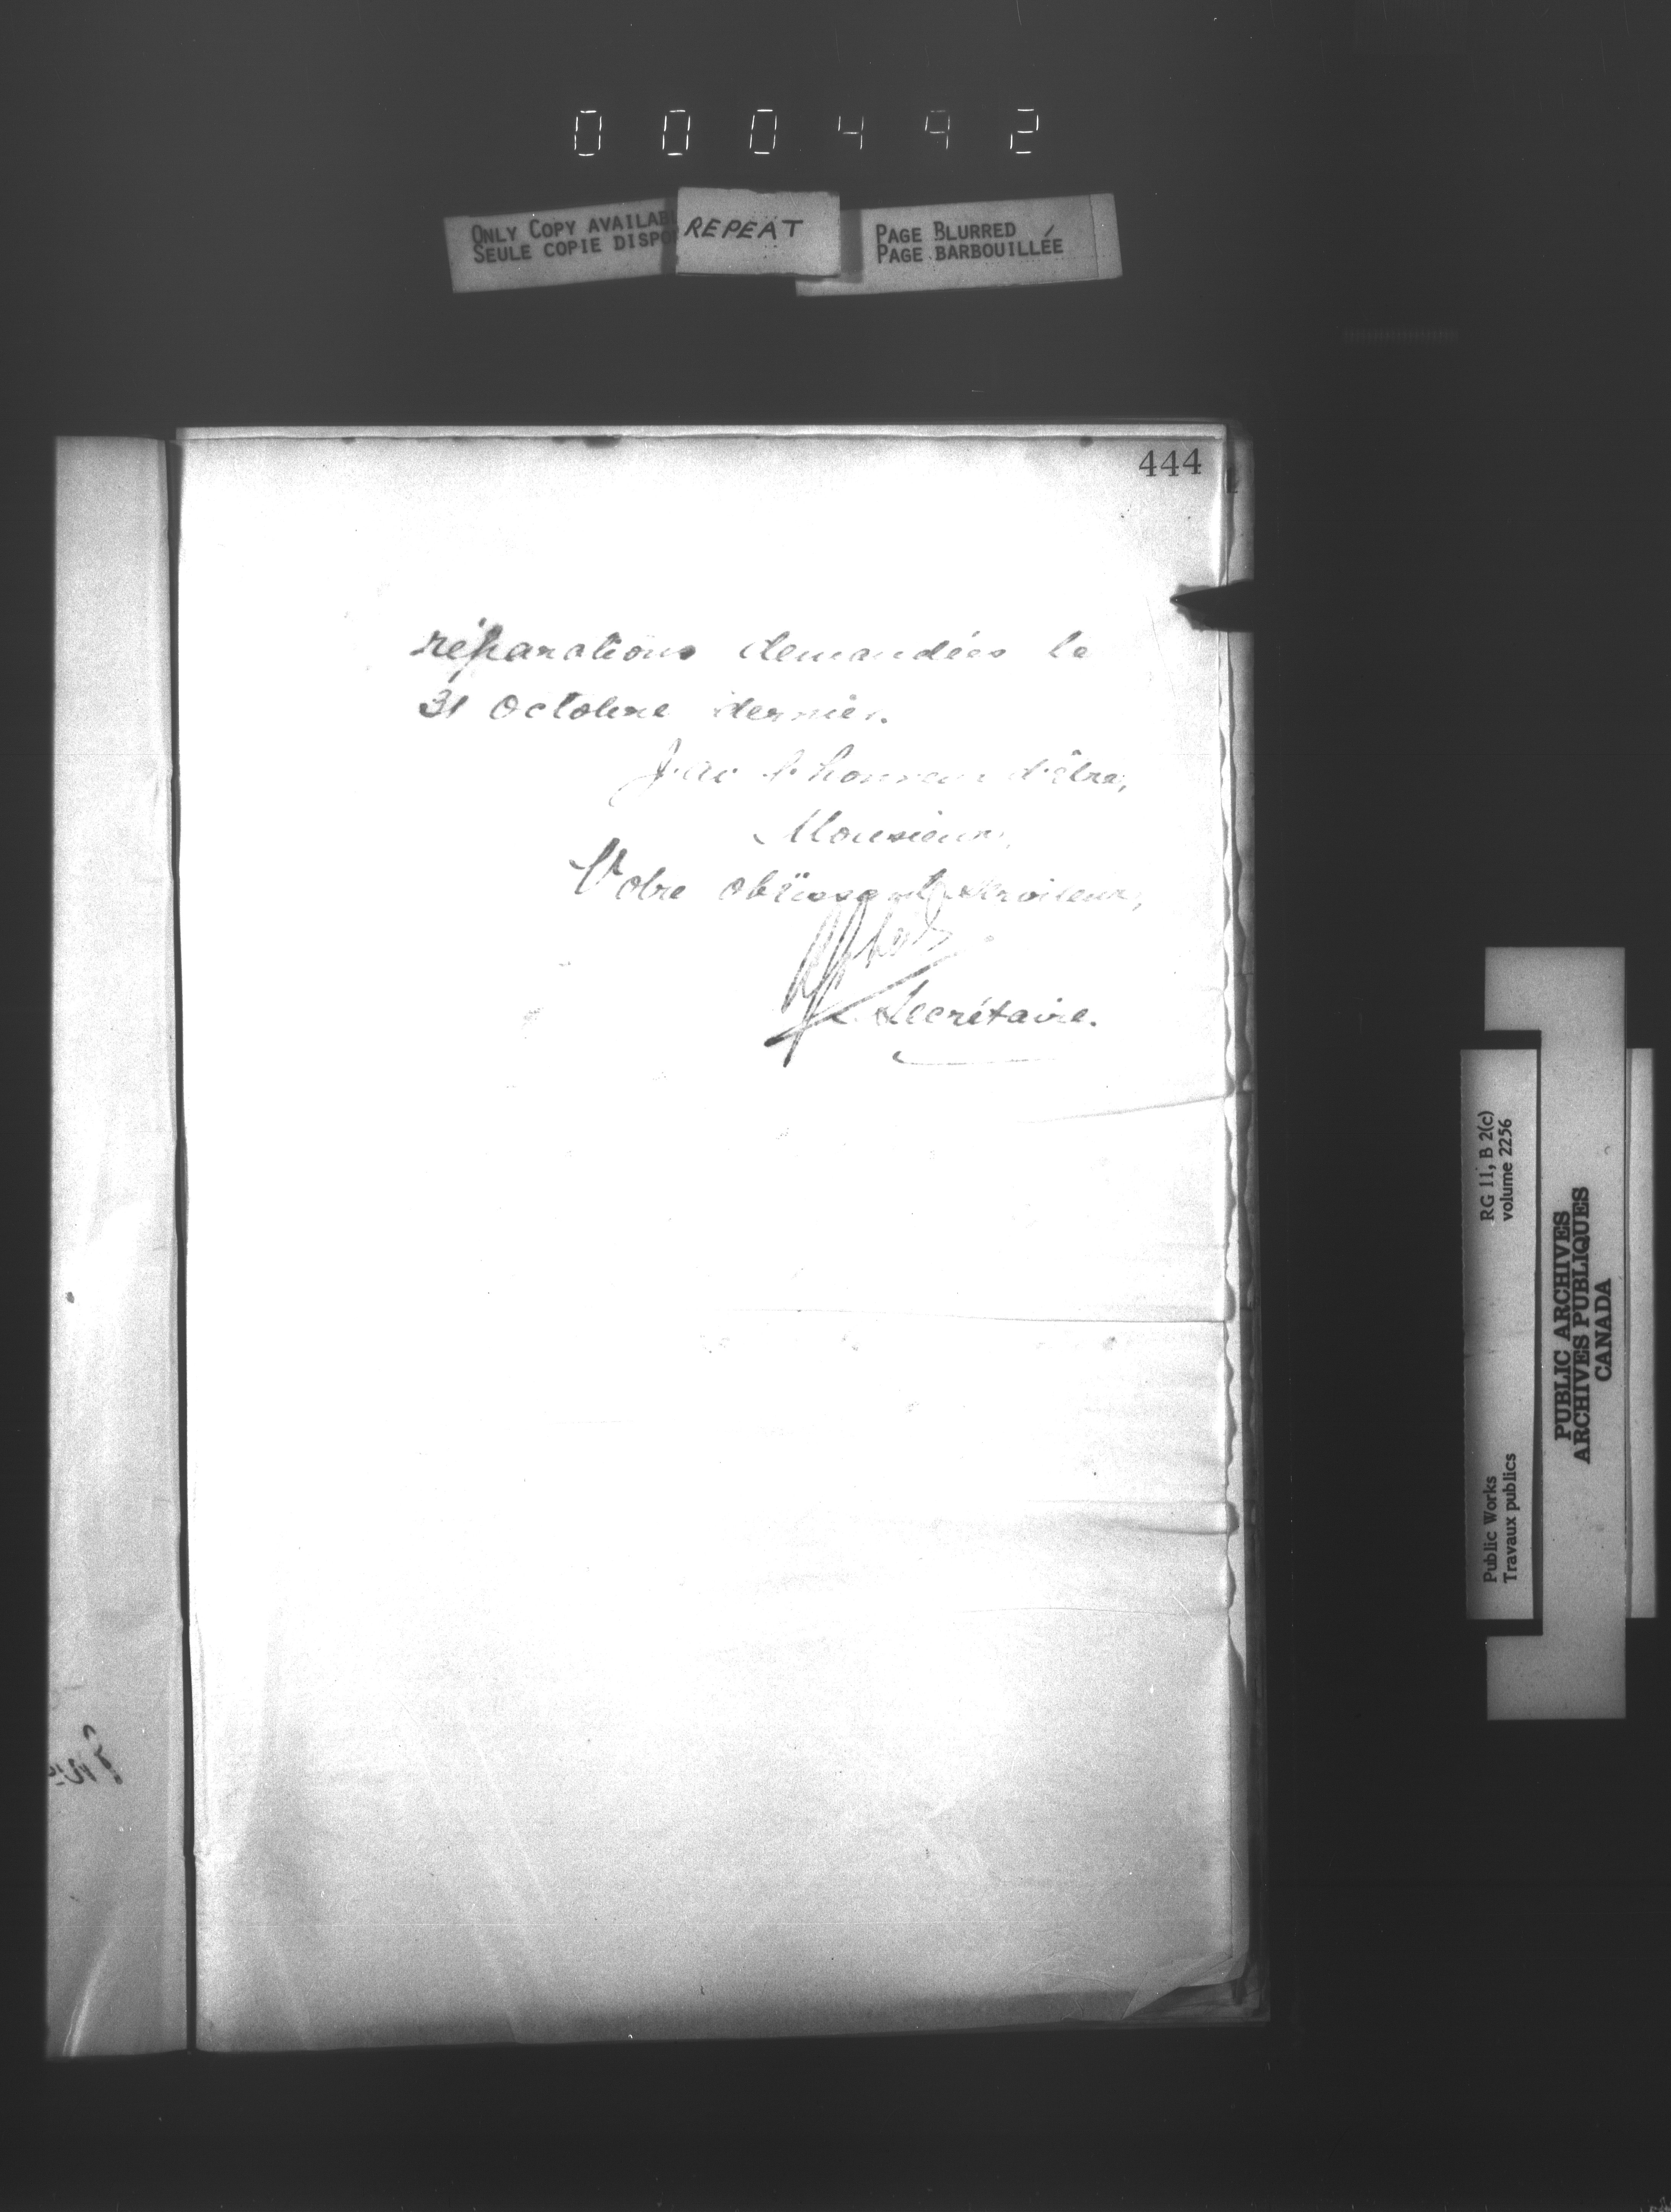 000492
ONLY COPY AVAILAB
SEULE COPIE DISPO
REPEAT
PAGE BLURRED
PAGE BARBOUILLÉE
444
réparations demandées le
31 Octobre dernier.
J'ai l'honneur d'être,
Monsieur,
Votre obéissant serviteur,
Secrétaire.
RG 11, B 2(c)
volume 2256
Public Works
Travaux publics
PUBLIC ARCHIVES
ARCHIVES PUBLIQUES
CANADA